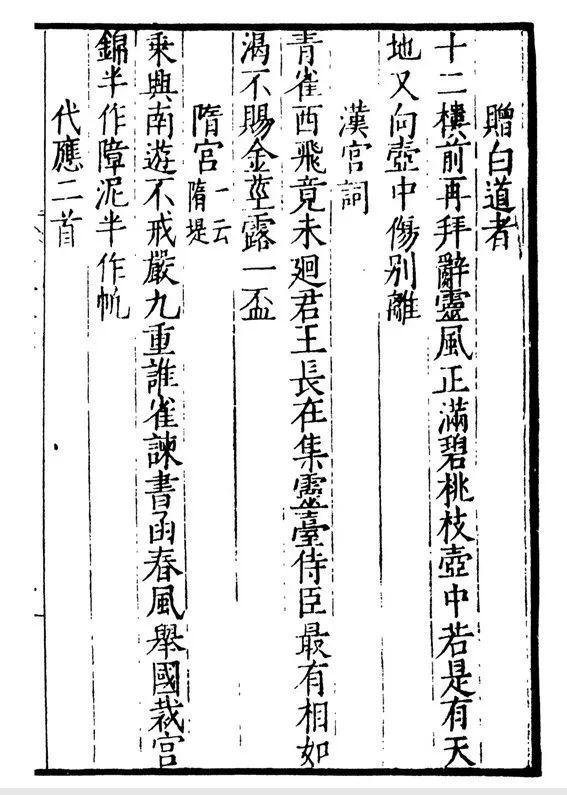 贈白道者
十二樓前再拜辭靈風正滿碧桃枝壺中若是有天
地又向壺中傷別離
漢宮詞
青雀西飛竟未廻君王長在集靈臺侍臣最有相如
渴不賜金莖露一盃
隋宮 一云隋堤
乘興南遊不戒嚴九重誰雀諫書函春風舉國裁宮
錦半作障泥半作帆
代應二首